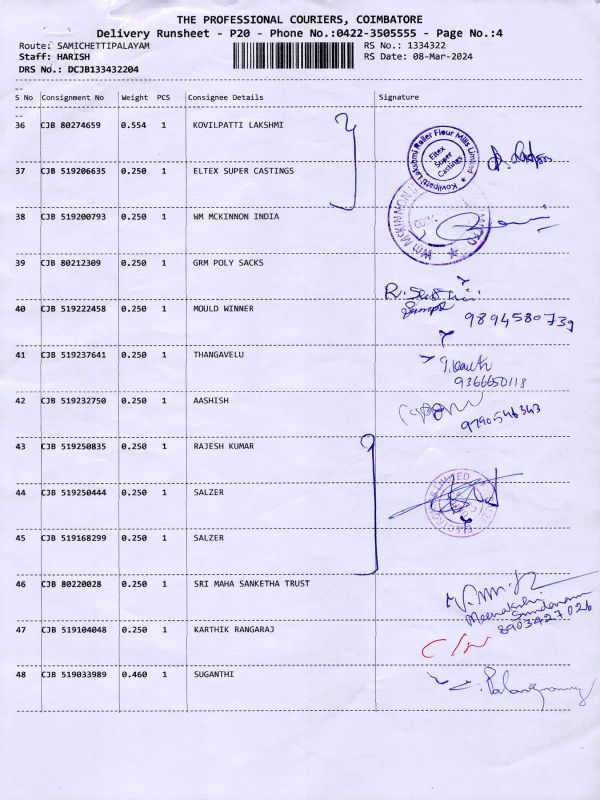 THE PROFESSIONAL COURIERS, COIMBATORE
Delivery Runsheet - P20 - Phone No.:0422-3505555 - Page No.:4
Route: SAMICHETTIPALAYAM RS No.: 1334322
Staff: HARISH RS Date: 08-Mar-2024
DRS No.: DCJB133432204
S No Consignment No Weight PCS Consignee Details Signature
36 CJB 80274659 0.554 1 KOVILPATTI LAKSHMI
Kovilpatti Lakshmi Roller Flour Mills Limited
Eltex Super Castings
37 CJB 519206635 0.250 1 ELTEX SUPER CASTINGS
38 CJB 519200793 0.250 1 WM MCKINNON INDIA
WM MCKINNON
39 CJB 80212309 0.250 1 GRM POLY SACKS
40 CJB 519222458 0.250 1 MOULD WINNER
9894580739
41 CJB 519237641 0.250 1 THANGAVELU
9366650118
42 CJB 519232750 0.250 1 AASHISH
9790546343
43 CJB 519250835 0.250 1 RAJESH KUMAR
44 CJB 519250444 0.250 1 SALZER
45 CJB 519168299 0.250 1 SALZER
46 CJB 80220028 0.250 1 SRI MAHA SANKETHA TRUST
Meenakshi
Sundaram
8903427026
47 CJB 519104048 0.250 1 KARTHIK RANGARAJ
48 CJB 519033989 0.460 1 SUGANTHI